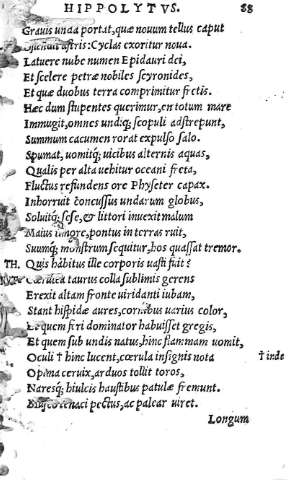 HIPPOLYTVS. 88
Grauis unda portat, quæ nouum tellus caput
Ostendit astris: Cyclas exoritur noua.
Latuere nube numen Epidauri dei,
Et scelere petræ nobiles scyronides,
Et quæ duobus terra comprimitur fretis.
Hæc dum stupentes querimur, en totum mare
Immugit, omnes undiq; scopuli adstrepunt,
Summum cacumen rorat expulso salo.
Spumat, uomitq; uicibus alternis aquas,
Qualis per alta uehitur oceani freta,
Fluctus refundens ore Physeter capax.
Inhorruit concussus undarum globus,
Soluitq; sese, & littori inuexit malum
Maius timore, pontus in terras ruit,
Suumq; monstrum sequitur, hos quassat tremor.
TH. Quis habitus ille corporis uasti fuit?
Cærulea taurus colla sublimis gerens
Erexit altam fronte uiridanti iubam,
Stant hispidæ aures, cornibus uarius color,
Et quem feri dominator habuisset gregis,
Et quem sub undis natus, hinc flammam uomit,
Oculi † hinc lucent, cœrula insignis nota † inde
Opima ceruix, arduos tollit toros,
Naresq; hiulcis haustibus patulæ fremunt.
tenaci pectus, ac palear uiret.
Longum